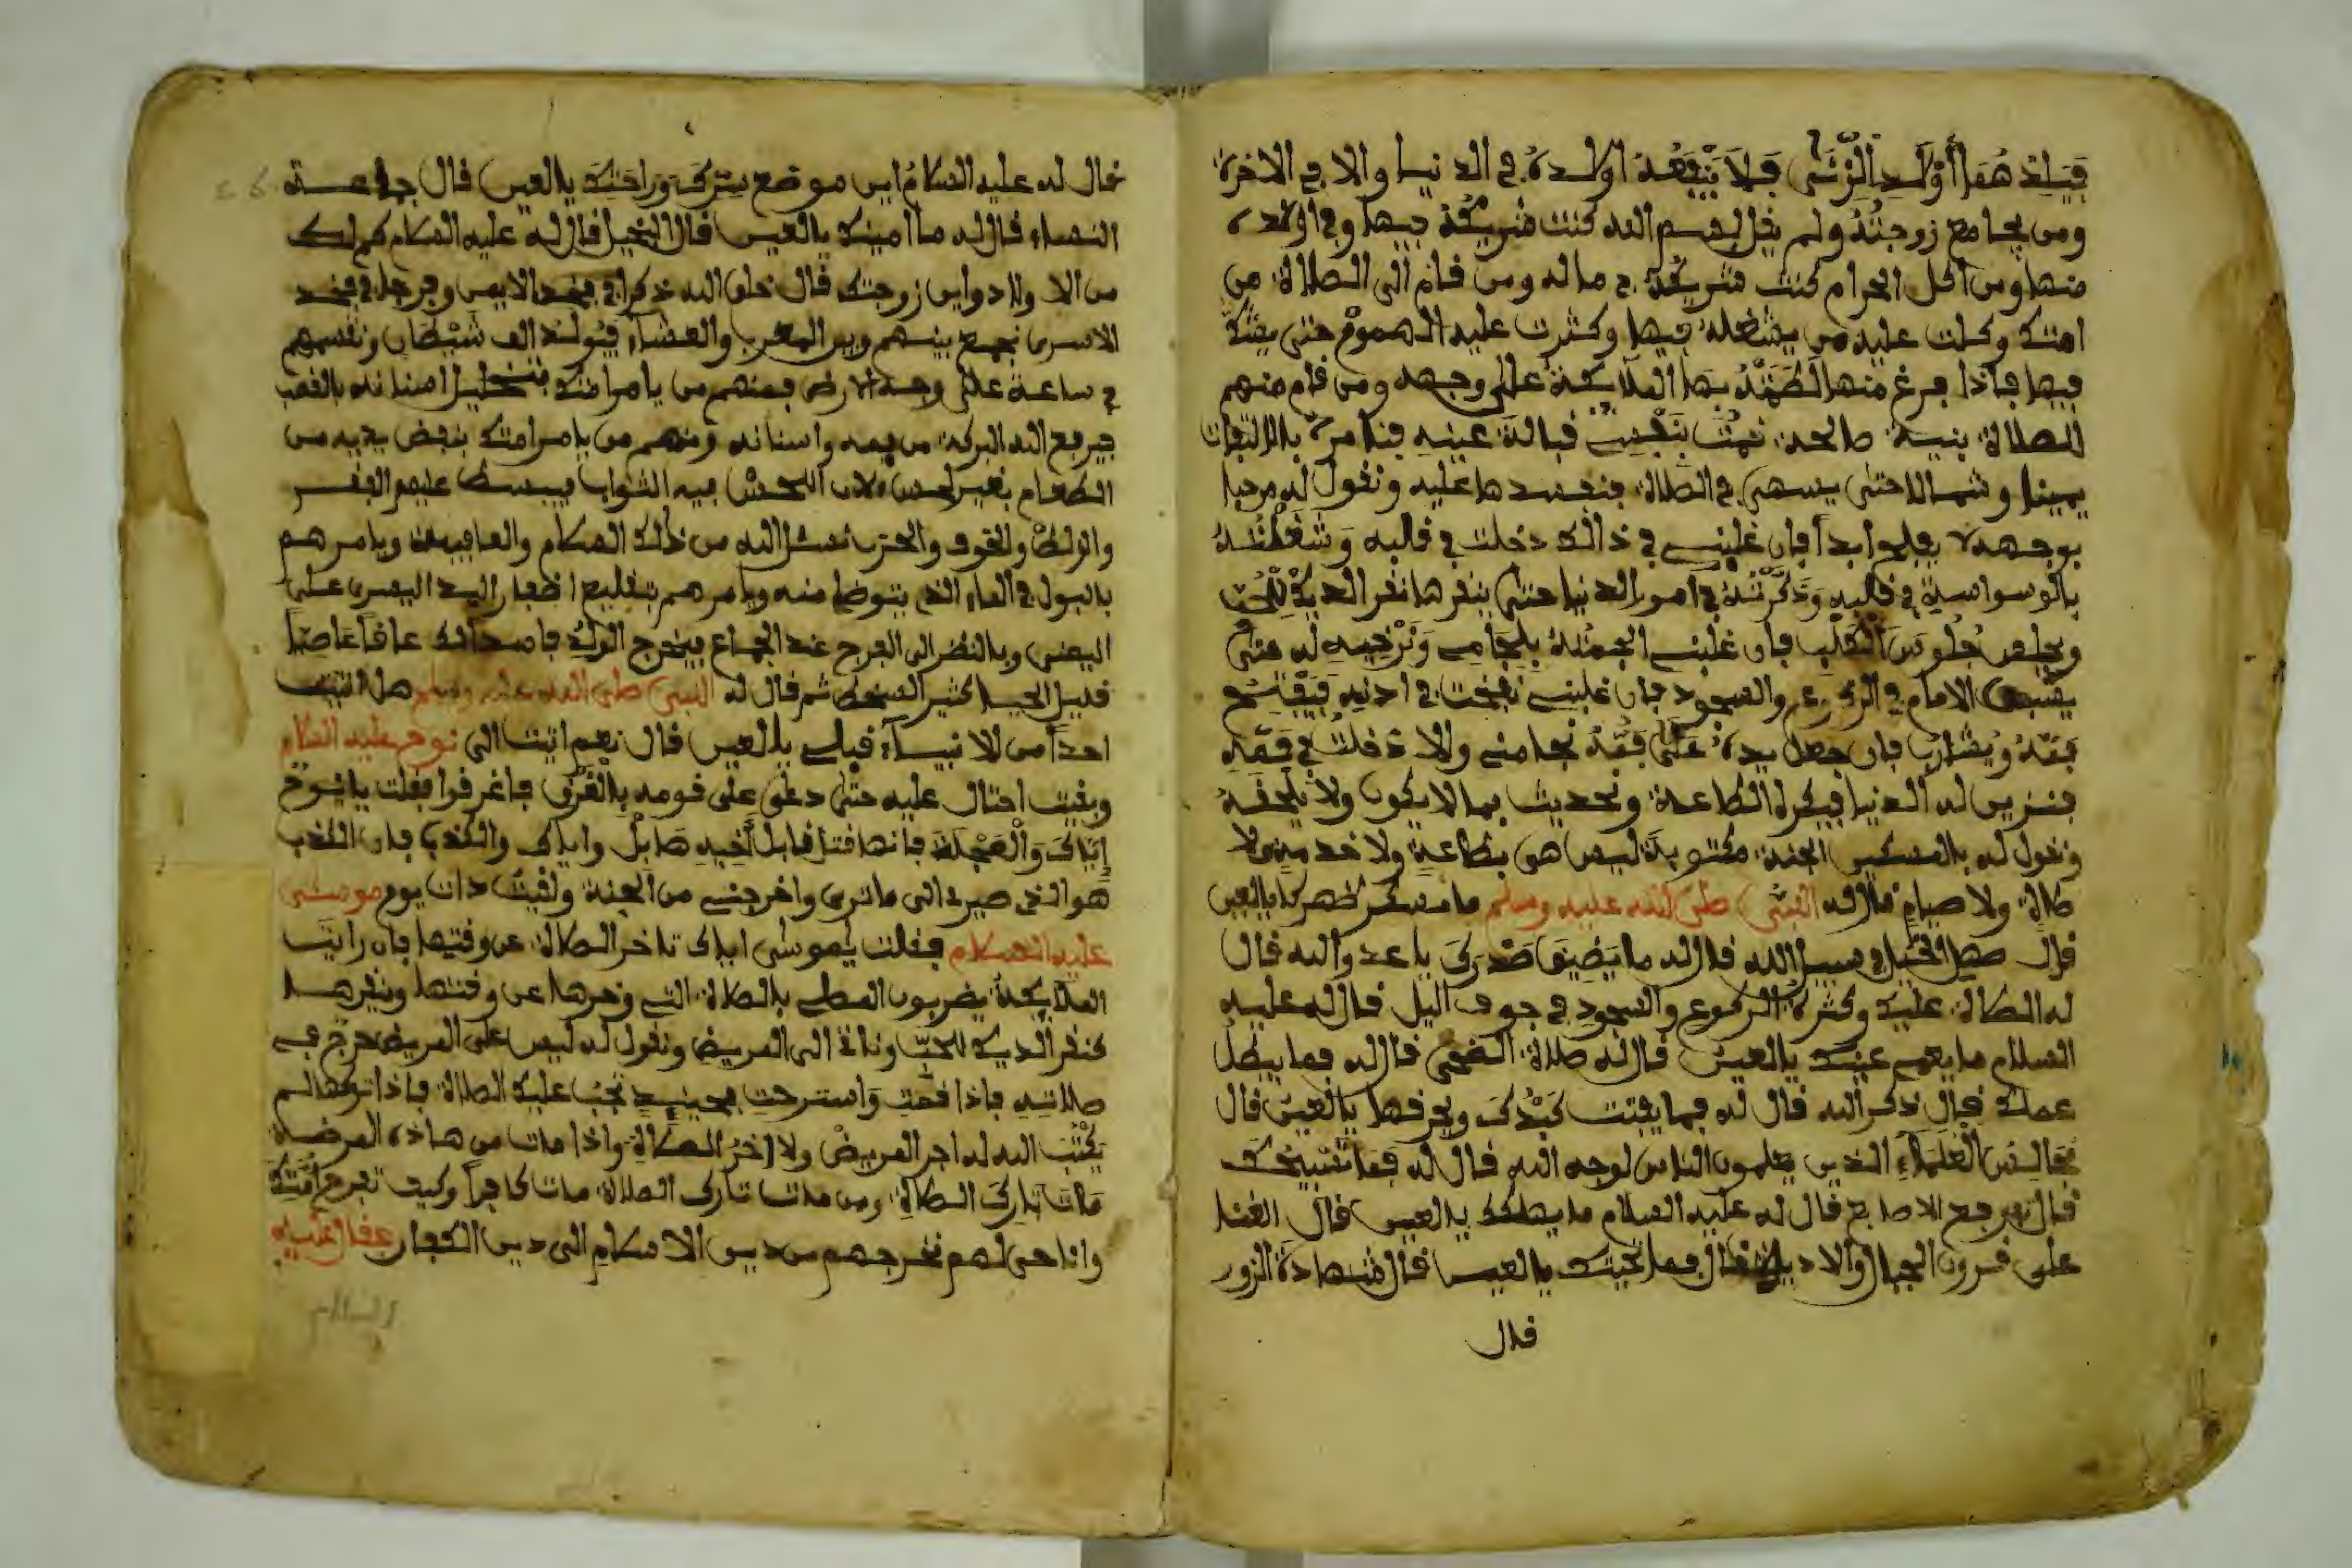 فيلد هذا أولد الزنى فلا ينفعه اولده في الدنيا والا في الاخرة
ومن يجامع زوجته ولم يقل بسم الله كنت شريكه فيها وفي اولاده
منها ومن اكل الحرام كنت شريكه في ماله ومن قام الى الصلاة من
امتك وكلت عليه من يشغله فيها وكثرت عليه الهموم حتى يشك
فيها فاذا فرغ منها لطمته بها الملائكة على وجهه ومن قام منهم
للصلاة بنية صالحة نمت بنفسي قبالة عينيه فنامره بالالتفات
يمينا وشمالا حتى يسهى في الصلاة فنفسدها عليه ونقول له مرحبا
بوجهه لا يفلح ابدا فان غلبني في ذالك دخلت في قلبه وشغلته
بالوسواسية في قلبه وذكرته في امور الدنيا حتى ينقرها نقر الديكة للحب
ويجلس جلوس الكلب فان غلبني الجمته بلجامي ونرخيه له حتى
يسبق الامام في الركوع والسجود فان غلبني نفخت في اذنيه فيفتح
فمه ويتثاوب فان جعل يده على فمه نجا مني والا دخلت في فمه
فنزين له الدنيا فيكره الطاعة ونحديث بما لا يكون ولا يلحقه
ونقول له يالمسكين الجنة مكتوبة ليس هي بطاعة ولا خدمة ولا
صلاة ولا صيام قال له النبي صلى الله عليه وسلم ما مكسر ظهرك يالعين
قال صهل الخيل في سبيل الله قال له ما يضيق صدرك يا عدو الله قال
له الصلاة عليك وكثرة الركوع والسجود في جوف اليل قال له عليه
السلام ما يعمي عينك يالعين قال له صلاة الضحى قال له فما يبطل
عملك قال ذكر الله قال له فما يفتت كبدك ويحرقها يالعين قال
مجالس العلماء الذين يعلمون الناس لوجه الله قال له فما
قال برفع الاصابع قال له عليه السلام ما يضحكك يالعين قال الغنا
على قرون الجبال والاديا قال فما يالعين قال شهادة الزور
قال
فال له عليه السلام اين موضع سترك وراحتك يالعين قال جماعة
النساء قال له ما امينك يالعين قال البخيل قال له عليه السلام كم لك
من الاولاد واين زوجتك قال خلق الله ذكرا في فخد الايمن وفرجا في فخد
الاسرى نجمع بينهم وبين المغرب والعشاء فيولد الف شيطان ونقسمهم
في ساعة على وجه الارض فمنهم من يامر امتك بتخليل اسنانه بالقصب
فيرفع الله البركة من فمه واسنانه ومنهم من يامر امتك بنفض يديه من
الطعام بغير لحس لان اللحس فيه الثواب فيبسط عليهم الفقر
والخوف والحزن نسئل الله من ذلك السلام والعافية ويامرهم
بالبول في الماء الذي يتوضا منه ويامرهم بتقليع اظفار اليد اليسرى على
اليمنى وبالنظر الى الفرج عند الجماع فيخرج الولد فاسدا عاقا عاصيا
قليل الحيا كثير السخط ثم قال له النبي صلى الله عليه وسلم هل اتيت
احدا من الانبياء قبلي يالعين قال نعم اتيت الى نوح عليه السلام
وبقيت احتال عليه حتى دعى على قومه بالغرق فاغرقوا فقلت يا نوح
اياك والعجلة فانها قتل قابل اخيه هابل واياك والكذب فان الكذب
هو الذي صيرني الى ما ترى واخرجني من الجنة ولقيت ذات يوم موسى
عليه السلام فقلت يموسى اياك تاخر الصلاة عن وقتها فان رايت
الملائكة يضربون المصلي بالصلاة التي وخرها عن وقتها وينقرها
كنقر الديكة للحب وناتي الى المريض ونقول له ليس على المريض حرج في
صلاته فاذا قمت واسترحت فحينيذ تجب عليك الصلاة فاذا تركها لم
يكتب الله له اجر المريض ولا اخر الصلاة واذا مات من هاذه المرضة
مات تارك الصلاة ومن مات تارك الصلاة مات كافرا وكيف تفرح امتك
وانا حي لهم نخرجهم من دين الاسلام الى دين الكفار فقال عليه
السلام